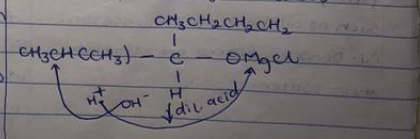 CH₃CH₂CH₂CH₂
CH₃CH(CH₃) — C — OMgCl
H
H⁺ OH⁻ dil acid